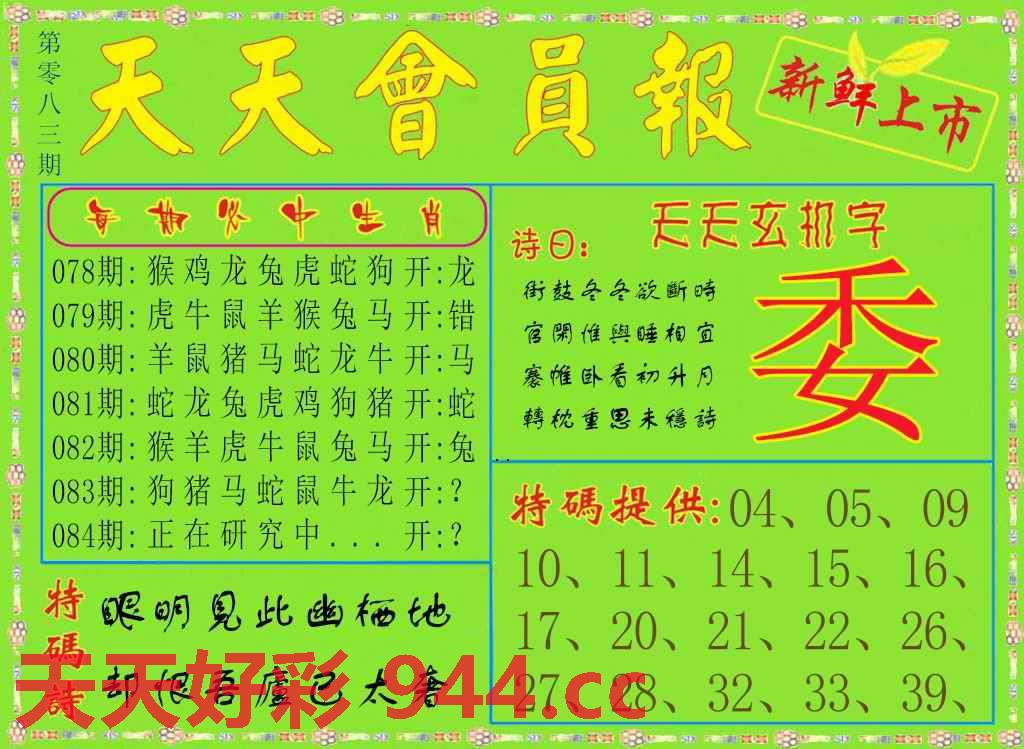 第零八三期
天天會員報
新鮮上市
每期必中生肖
078期:猴鸡龙兔虎蛇狗开:龙
079期:虎牛鼠羊猴兔马开:错
080期:羊鼠猪马蛇龙牛开:马
081期:蛇龙兔虎鸡狗猪开:蛇
082期:猴羊虎牛鼠兔马开:兔
083期:狗猪马蛇鼠牛龙开:?
084期:正在研究中...开:?
天天玄机字
诗曰:
街鼓冬冬欲斷時
官閑惟與睡相宜
褰帷卧看初升月
轉枕重思未穩詩
委
特碼提供:04、05、09
10、11、14、15、16、
17、20、21、22、26、
27、28、32、33、39、
特碼詩
眼明見此幽栖地
却恨吾廬已太奢
天天好彩 944.cc